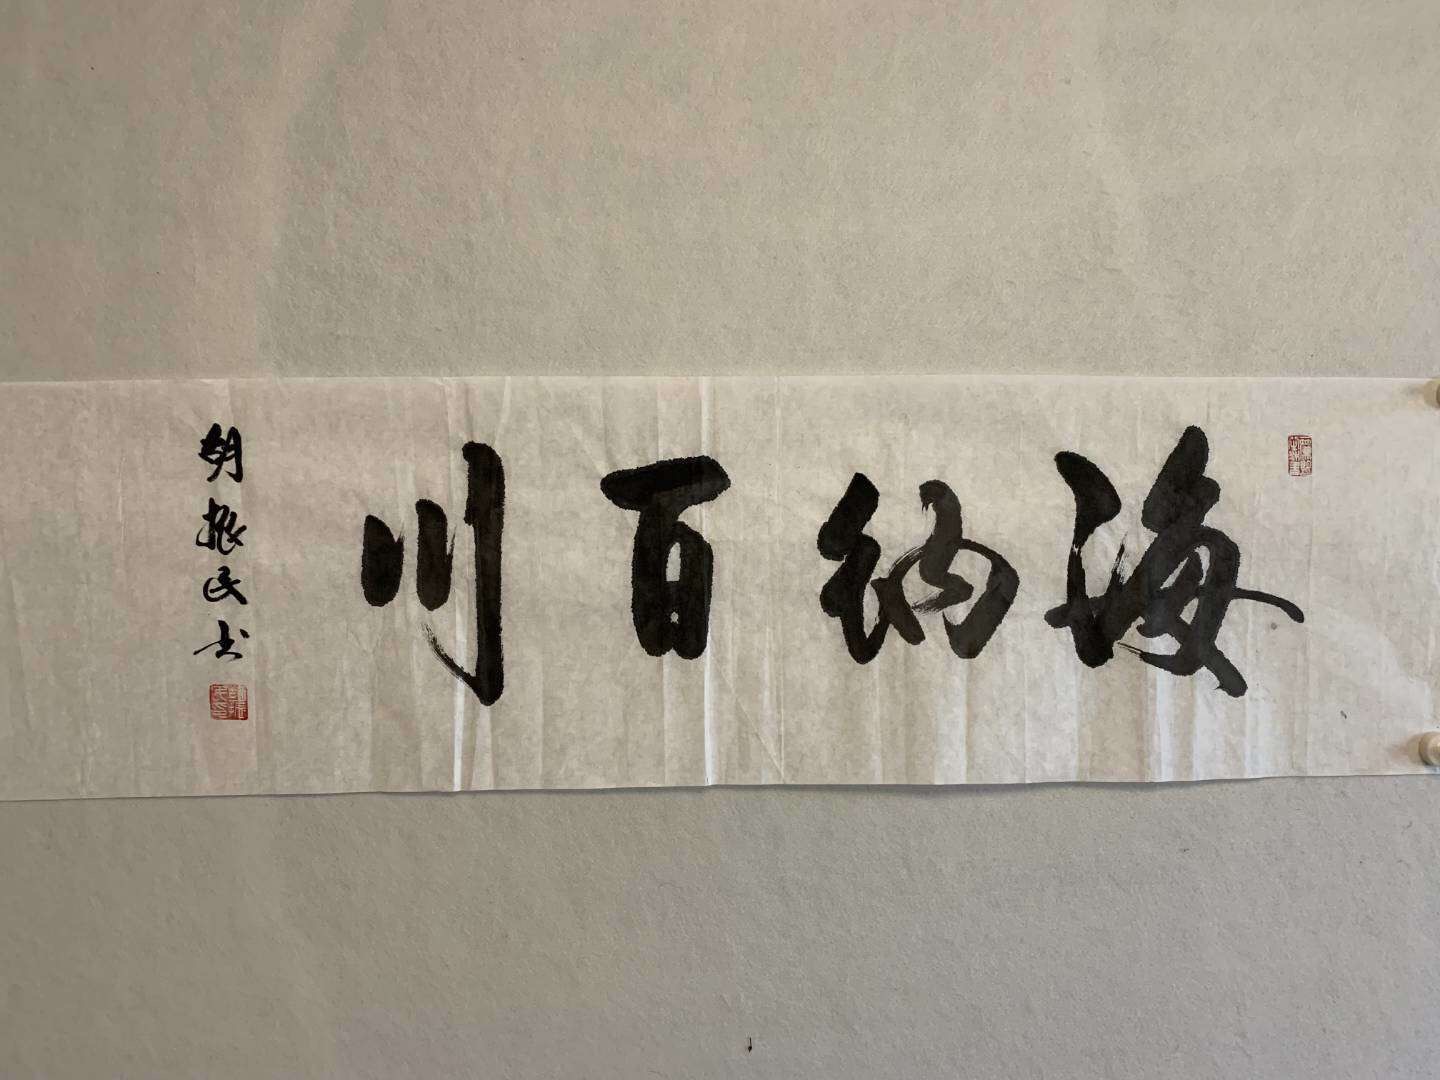 海纳百川
胡振民书